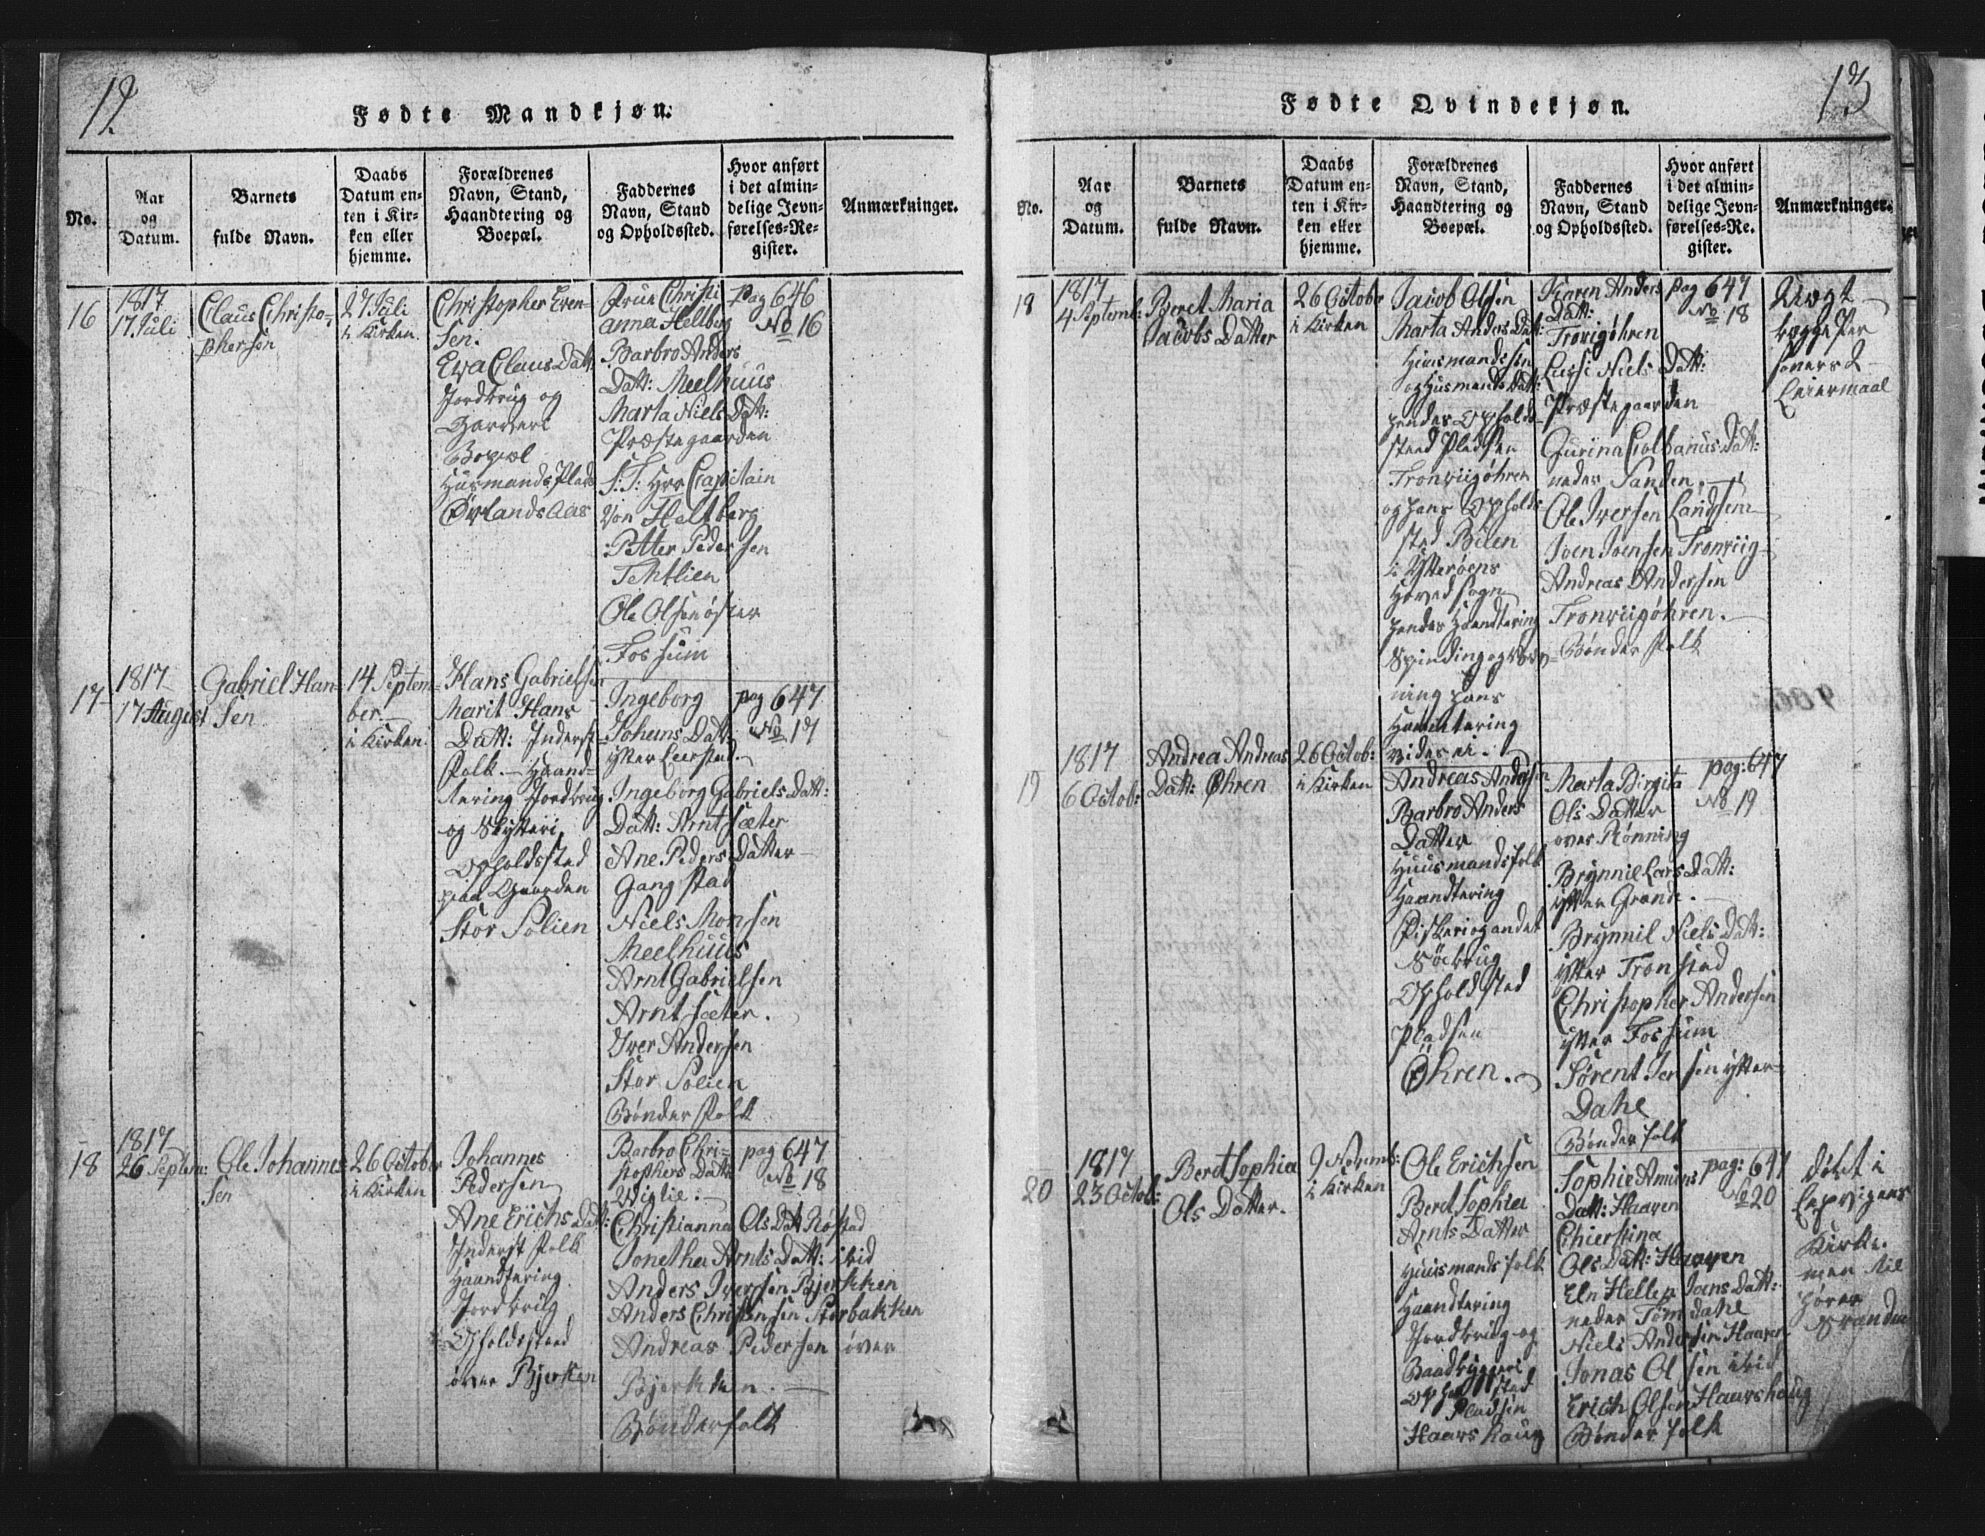 12.
Fødte Mandkjøn.
No.
Aar
og
Datum.
Barnets
fulde Navn.
Daabs
Datum en-
ten i Kir-
ken eller
hjemme.
Forældrenes
Navn, Stand,
Haandtering og
Boepæl.
Faddernes
Navn, Stand
og Opholdssted.
Hvor anført
i det almin-
delige Jevn-
førelses-Re-
gister.
Anmærkninger.
16
1817
17 Juli
Claus Christo-
phersen
27 Juli
i Kirken
Christopher Even-
sen.
Ewa Claus Datt:
Jordbrug og
Boepæl
Huusmands Plads
Ørlands Aas
Frue Christi
anna Heltberg
Barbro Anders
Datt: Meelhuus
Marta Niels Datt:
Præstegaarden
S: T: Hrr Capitain
Von Heltberg
Petter Pedersen
Tehtlien
Ole Olsen øster
Fossum
Pag 646
No 16
17
1817
17 August
Gabriel Han-
sen
14 Septem-
ber.
i Kirken.
Hans Gabrielsen
Marit Hans
Datt: Inderst
Folk. - Haand-
tering Jordbrug
og Skytteri
Opholdssted
paa Gaarden
Stor Solien
Ingeborg
Johans Datt:
ytter Leerstad.
Ingeborg Gabriels Datt:
Datt: Arntsæter
Ane Peders Datter
Gangstad
Niels Monsen
Meelhuus
Arnt Gabrielsen
Arntsæter.
Iver Andersen
Stor Solien
Bønder Folk
pag 647
No 17
18
1817
26 Septem:
Ole Johannes-
sen
26 October
i Kirken
Johannes
Pedersen
Ane Erichs Datt:
Inderst Folk
Haandtering
Jordbrug
Opholdssted
over Bjerken
Barbro Chri-
stophers Datt:
Wiglie.
Christianna Ols Dat Røstad
Jonetha Arnts Datt: ibid
Anders Iversen Bjerkken
Anders Christensen Storbakken
Andreas Pedersen over
Bjerkken.
Bønderfolk
pag 647
No 18
13
Fødte Qvindekjøn.
No.
Aar
og
Datum.
Barnets
fulde Navn.
Daabs
Datum en-
ten i Kir-
ken eller
hjemme.
Forældrenes
Navn, Stand,
Haandtering og
Boepæl.
Faddernes
Navn, Stand
og Opholdssted.
Hvor anført
i det almin-
delige Jevn-
førelses-Re-
gister.
Anmærkninger.
18
1817
4 Septemb:
Beret Maria
Jacobs Datter
26 October
i Kirken
Jacob Olsen
Marta Anders Datt:
Huusmandssen
og Husmands Datt:
hendes Opholds-
sted Pladsen
Tronviigøhren
og hans Opholds
sted Buen
i Ytterøens
Hoved sogn
hendes Haandtering
Spinding og Væv-
ning hans
Haandtering
vides ei.
Karen Anders
Datt:
Tronigøhren
Lussi Niels Datt:
Præstegaarden
Gurina Colbanus Datt:
neder Sanden.
Ole Iversen Landsem
Joen Joensen Tronviig
Andreas Andersen
Tronviigøhren.
Bønder Folk
pag 647
No 18
Uægt
begge Per
soners 2
Leiermaal
19
1817
6 Octob:
Andrea Andreas
Datt: Øhren
26 Octob:
i Kirken
Andreas Andersen
Barbro Anders
Datter
Huusmandsfolk
Haandtering
Fiskeri og andet
Søebrug
Opholdsted
Pladsen
Øhren.
Marta Birgita
Ols Datter
over Rønning
Brynnil Lars Datt:
ytter Grande.
Brynnil Niels Datt:
ytter Tronstad
Christopher Andersen
ytter Fossum
Sørent Jensen ytter
Dahl
Bønder folk
pag: 647
No 19
20
1817
23 Octob:
Beret Sophia
Ols Datter.
9 Novemb:
i Kirken
Ole Erichsen
Beret Sophia
Arnts Datter
Huusmandsfolk
Haandtering
Jordbrug og
Baadbyggeri
Opholdsted
Pladsen
Haarshaug
Sophie Amuns
Datt: Haaven
Chierstina
Ols Datt: Haaven
Eln Hellen Joens Datt:
neder Tømdahl
Niels Andersen Haaven
Jonas Olsen ibid
Erich Olsen Haarshaug
Bønder folk
pag: 647
No 20
døbt i
Lexvigens
Kirke.
men til
hører
Stranden